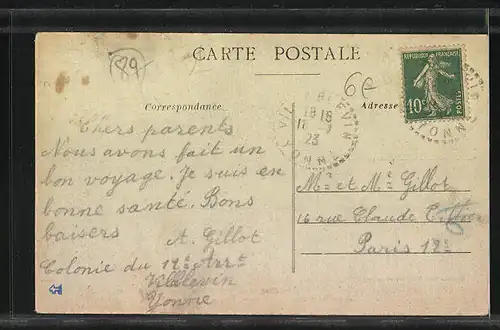 89
CARTE POSTALE
6e
REPUBLIQUE FRANÇAISE
10c
POSTES
Correspondance
Adresse
18 18
23
YONNE
Chers parents
Nous avons fait un
bon voyage. Je suis en
bonne santé. Bons
baisers
A. Gillot
Colonie du 12e Arrt
Villevin
Yonne
M. et Me Gillot
16 rue Claude
Paris 12e